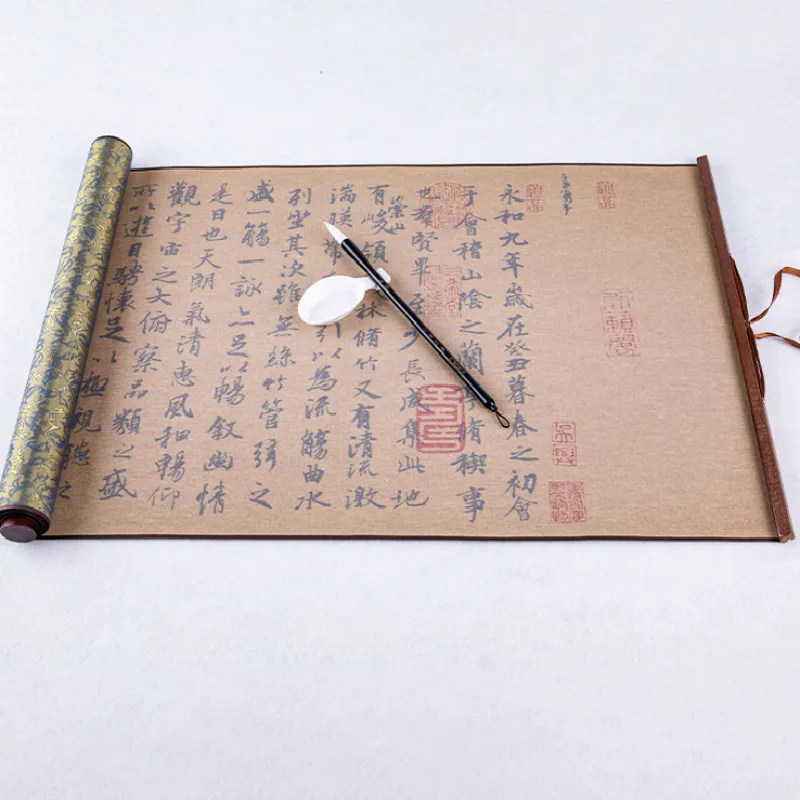 永和九年歲在癸丑暮春之初會
于會稽山陰之蘭亭脩稧事
也羣賢畢至少長咸集此地
有崇山峻領林脩竹又有清流激
湍暎帶引以為流觴曲水
列坐其次雖無絲竹管弦之
盛一觴一詠亦足以暢敘幽情
是日也天朗氣清惠風和暢仰
觀宇宙之大俯察品類之盛
所以遊目騁懷足以極視聽之